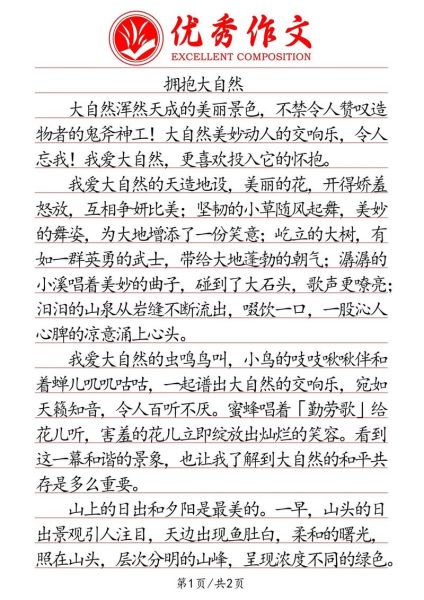 优秀作文
EXCELLENT COMPOSITION
拥抱大自然
大自然浑然天成的美丽景色，不禁令人赞叹造
物者的鬼斧神工！大自然美妙动人的交响乐，令人
忘我！我爱大自然，更喜欢投入它的怀抱。
我爱大自然的天造地设，美丽的花，开得娇羞
怒放，互相争妍比美；坚韧的小草随风起舞，美妙
的舞姿，为大地增添了一份笑意；屹立的大树，有
如一群英勇的武士，带给大地蓬勃的朝气；潺潺的
小溪唱着美妙的曲子，碰到了大石头，歌声更嘹亮；
汩汩的山泉从岩缝不断流出，啜饮一口，一股沁人
心脾的凉意涌上心头。
我爱大自然的虫鸣鸟叫，小鸟的吱吱啾啾伴和
着蝉儿叽叽咕咕，一起谱出大自然的交响乐，宛如
天籁知音，令人百听不厌。蜜蜂唱着「勤劳歌」给
花儿听，害羞的花儿立即绽放出灿烂的笑容。看到
这一幕和谐的景象，也让我了解到大自然的和平共
存是多么重要。
山上的日出和夕阳是最美的。一早，山头的日
出景观引人注目，天边出现鱼肚白，柔和的曙光，
照在山头，层次分明的山峰，呈现浓度不同的绿色。
第1页/共2页